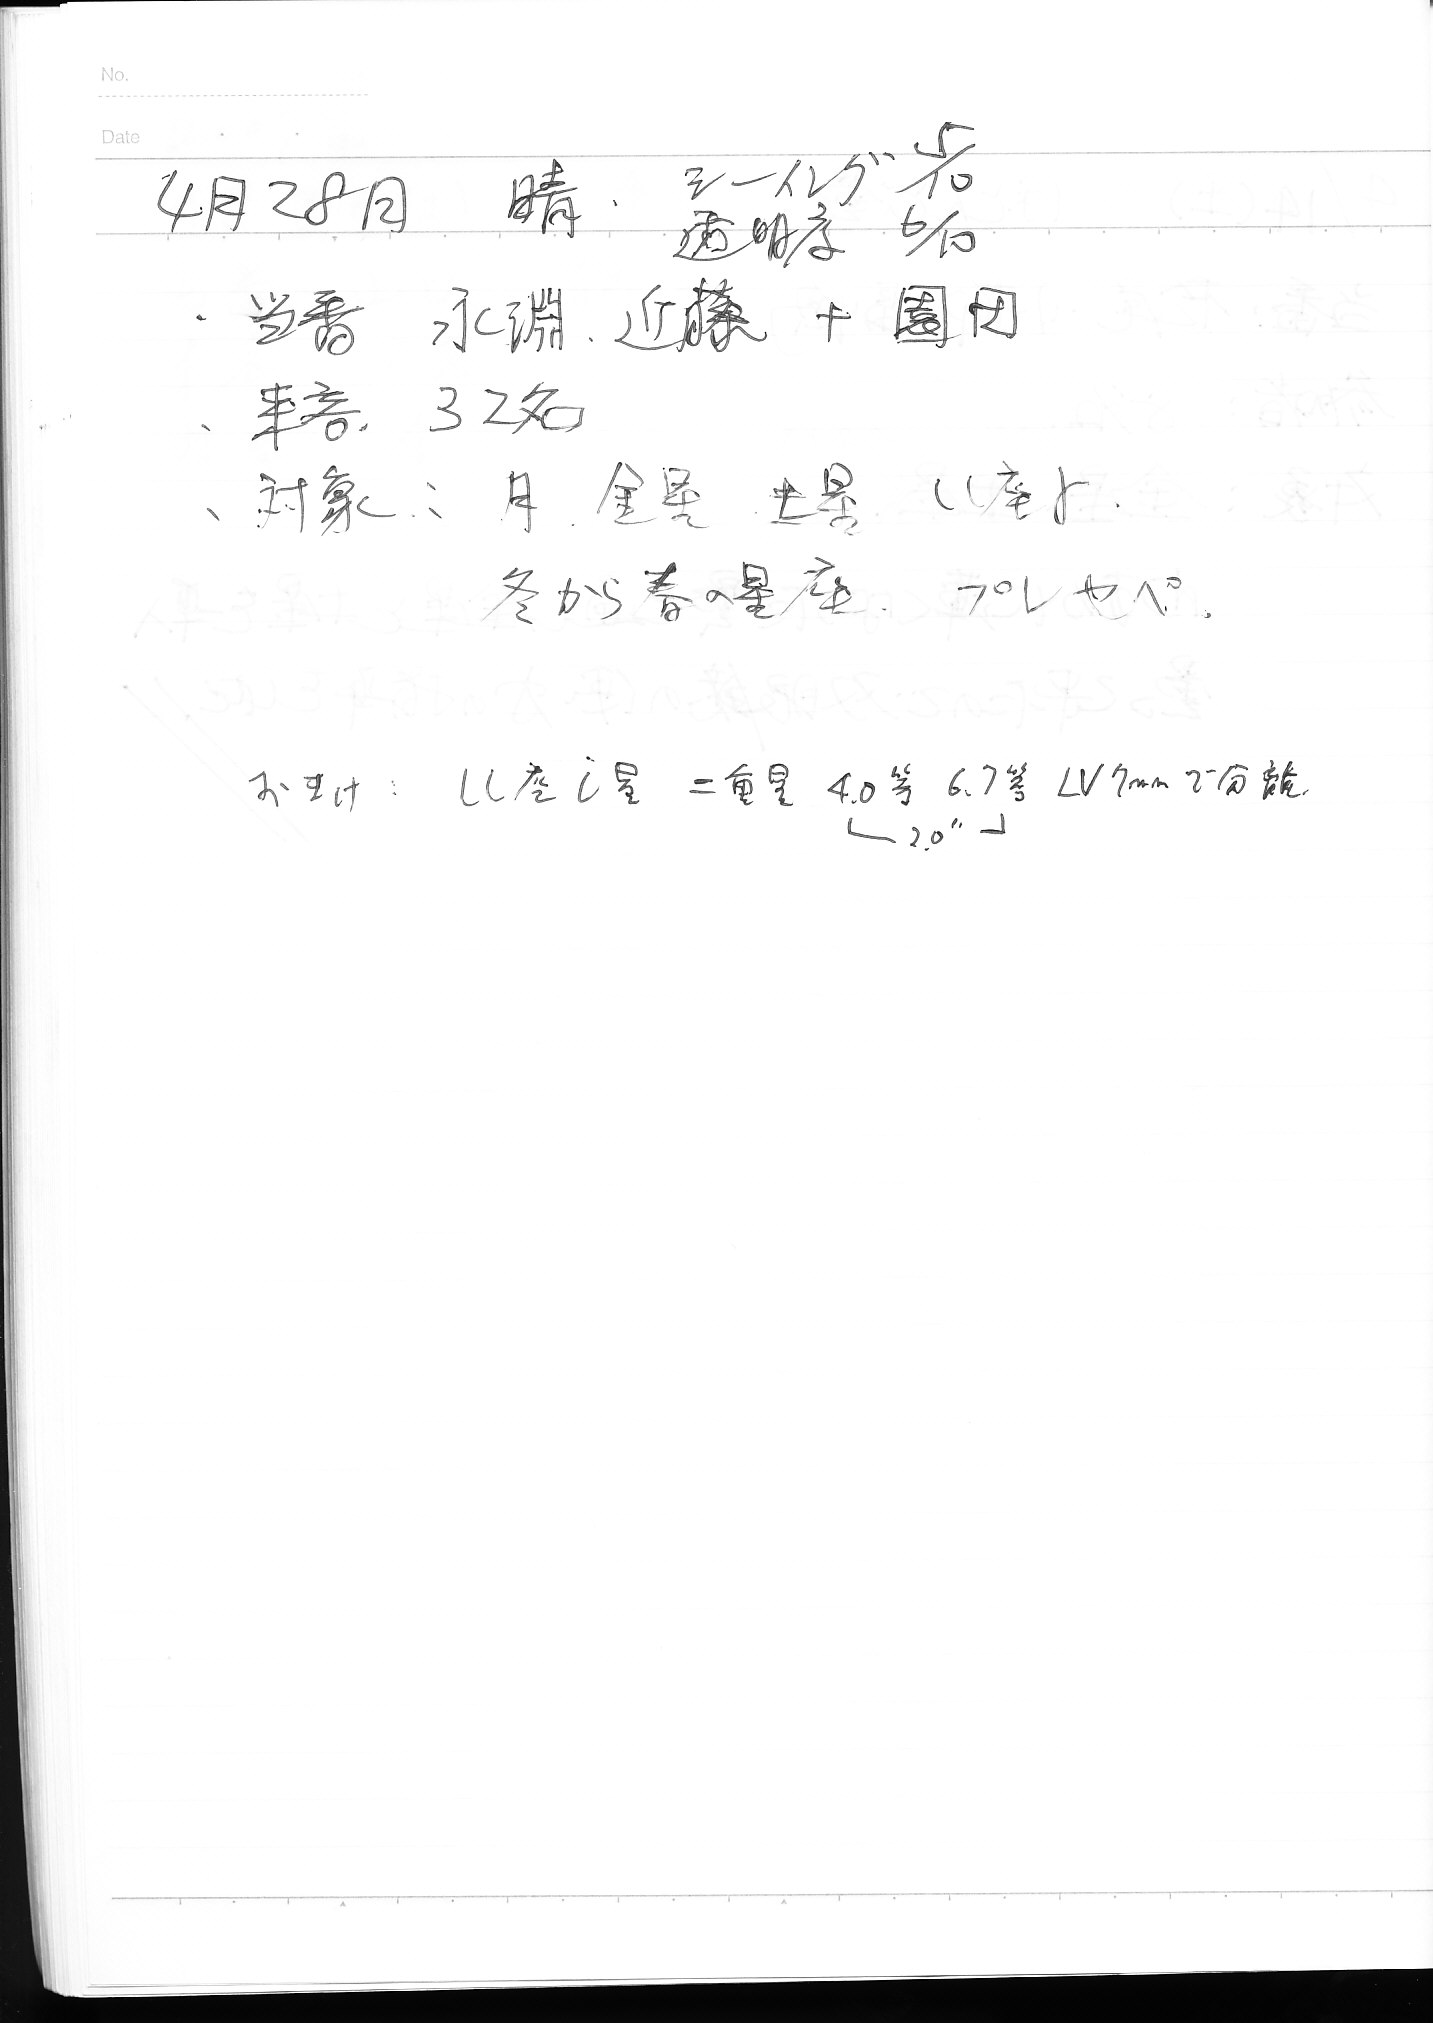 No.
Date
4月28日 晴. シーイング 5/10
透明度 6/10
・当番 永淵、近藤 + 園田
、来客. 32名
、対象: 月. 金星 土星 しし座γ.
冬から春の星座. プレセペ.
おまけ: しし座ι星 二重星 4.0等 6.7等 LV7mmで分離.
2.0"